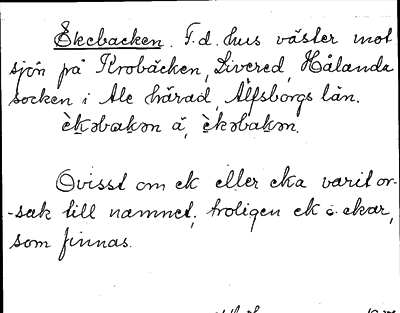 Ekebacken. F.d. hus väster mot
sjön på Krobäcken, Livered, Hålanda
socken i Ale härad, Älfsborgs län.
èkəbakən å, èkəbakən.
Ovisst om ek eller eka varit or-
-sak till namnet, troligen ek ö. ekar,
som finnas.